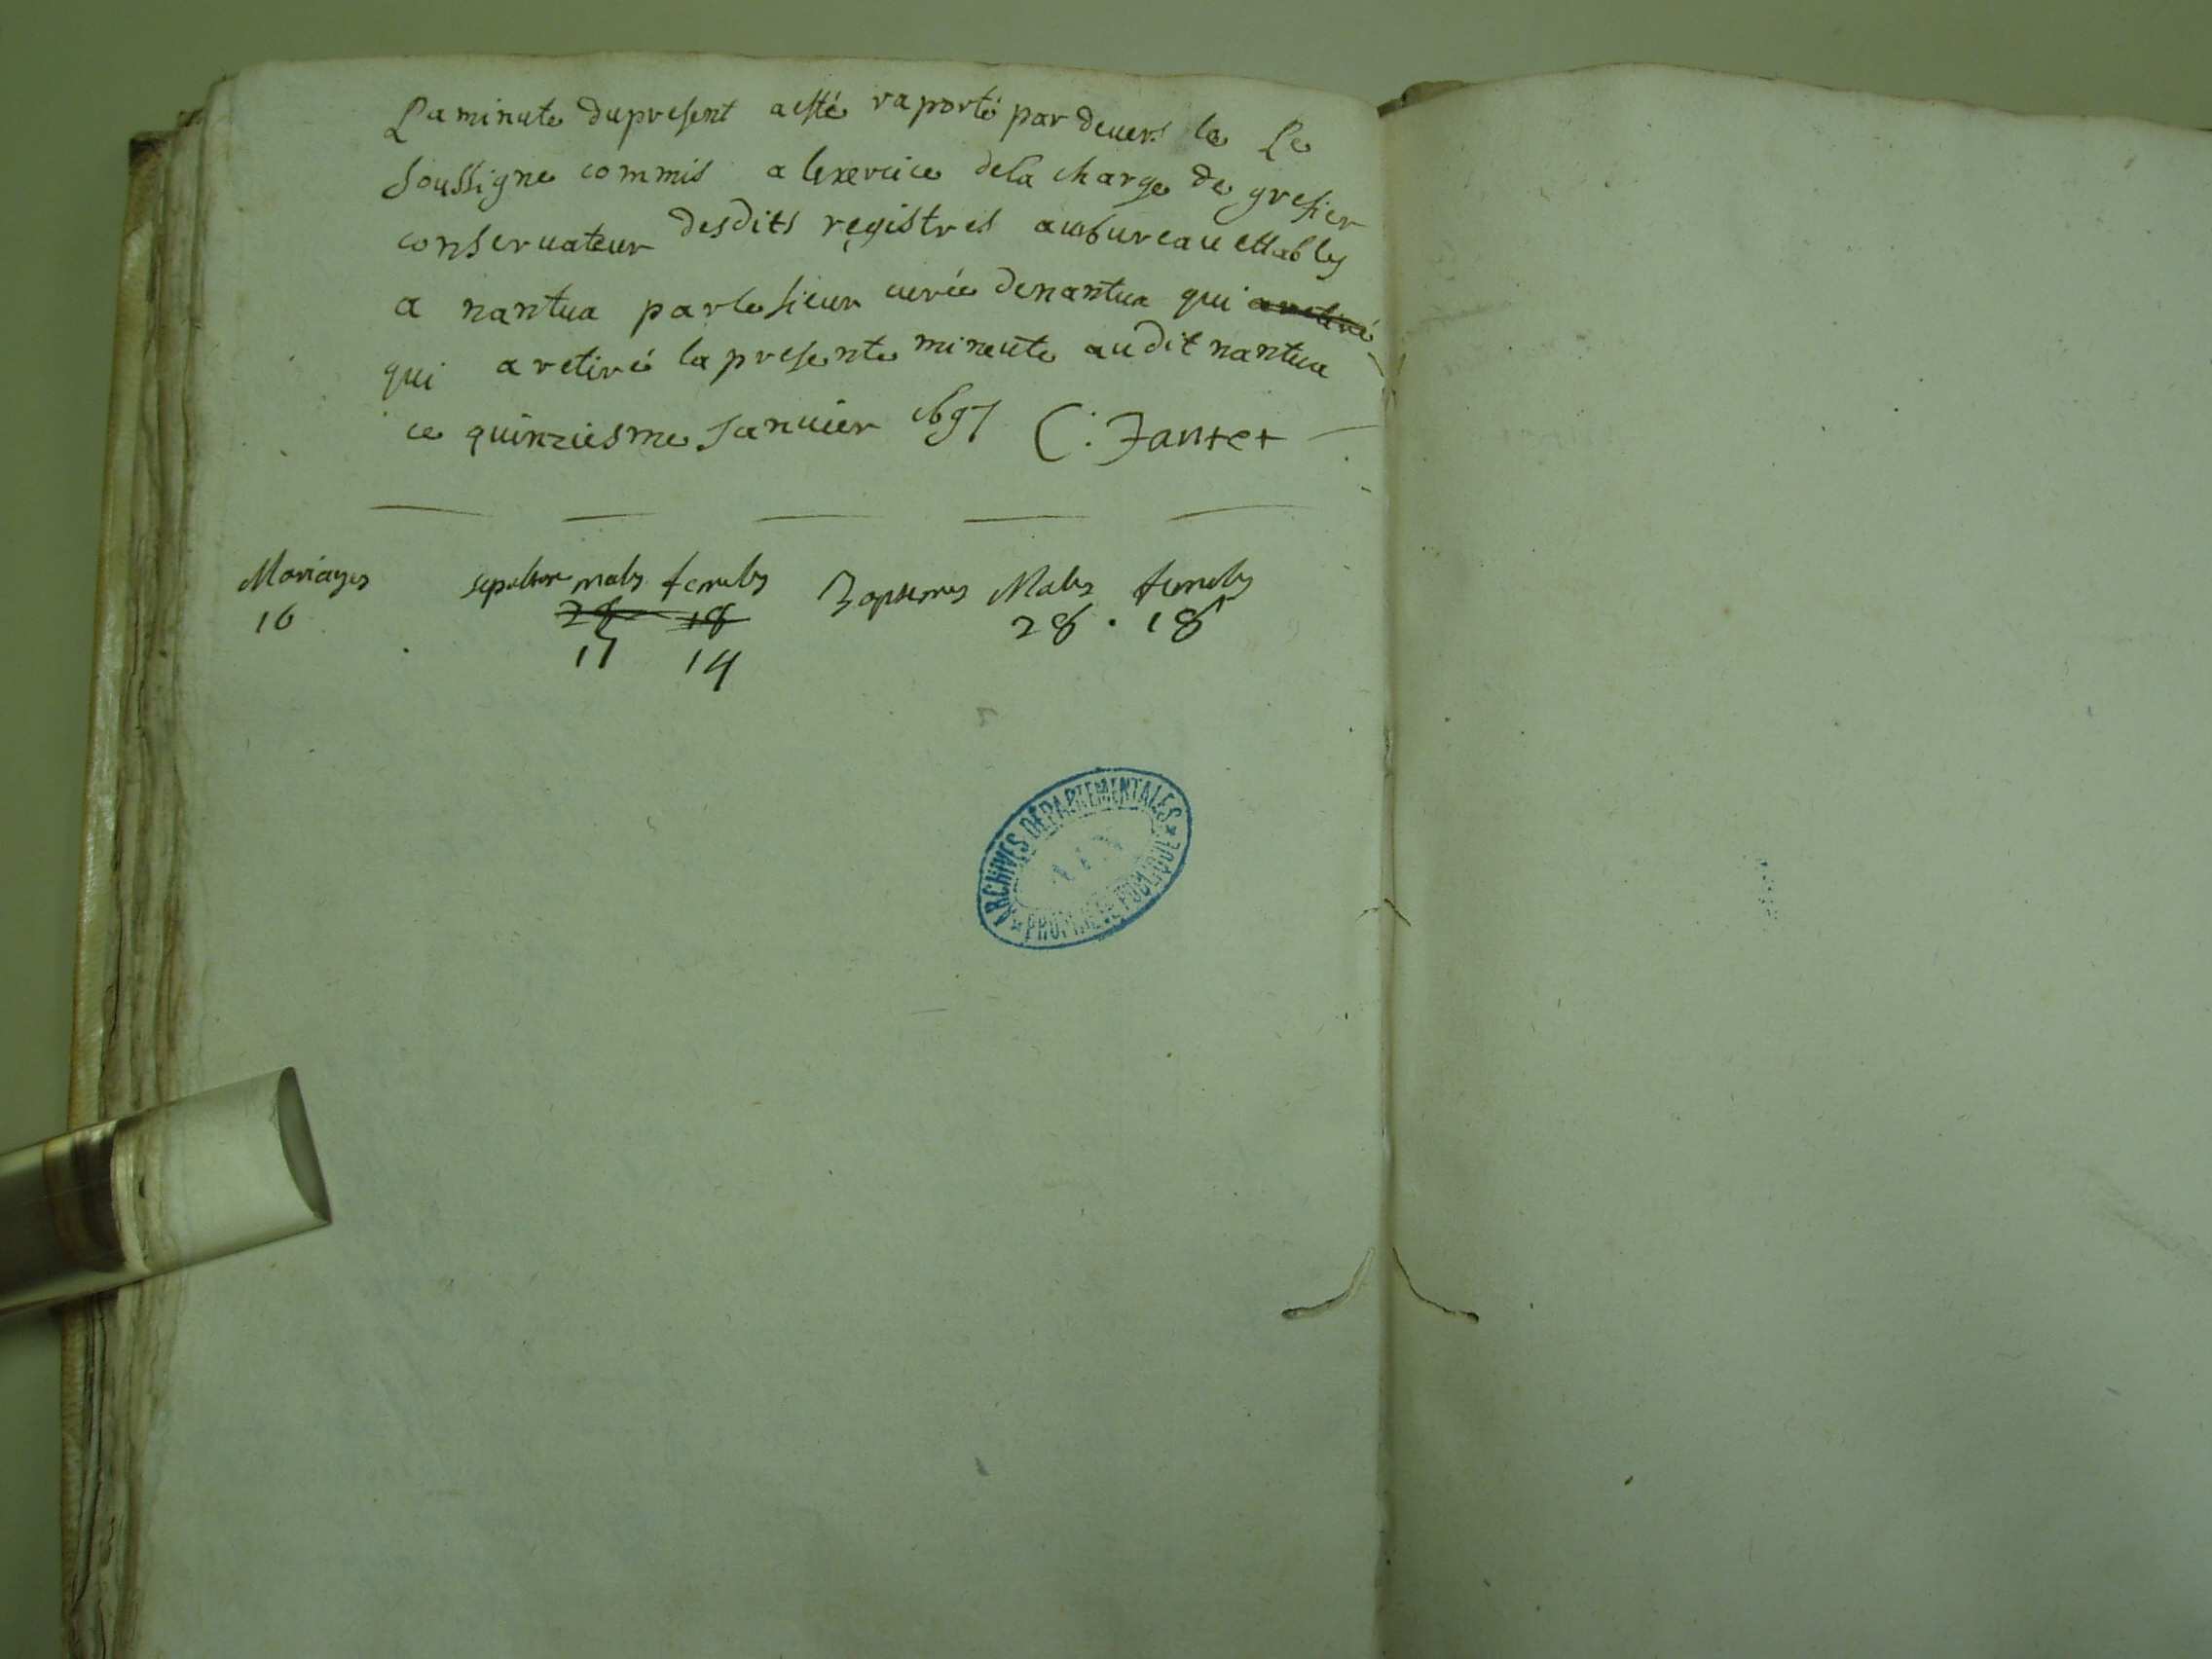 La minute du present a esté raporté par devers le Le
soussigne commis a lexercice de la charge de grefier
conservateur desdits registres au bureau ettably
a nantua par le sieur curée de nantua qui a retiré
qui a retiré la presente mineute audit nantua
ce quinziesme Janvier 1697 C. Jantet
Mariages sepulture males femeles Baptemes Males femeles
16 28 18 28 . 18
17 14
ARCHIVES DÉPARTEMENTALES
AIN
PROPRIÉTÉ PUBLIQUE